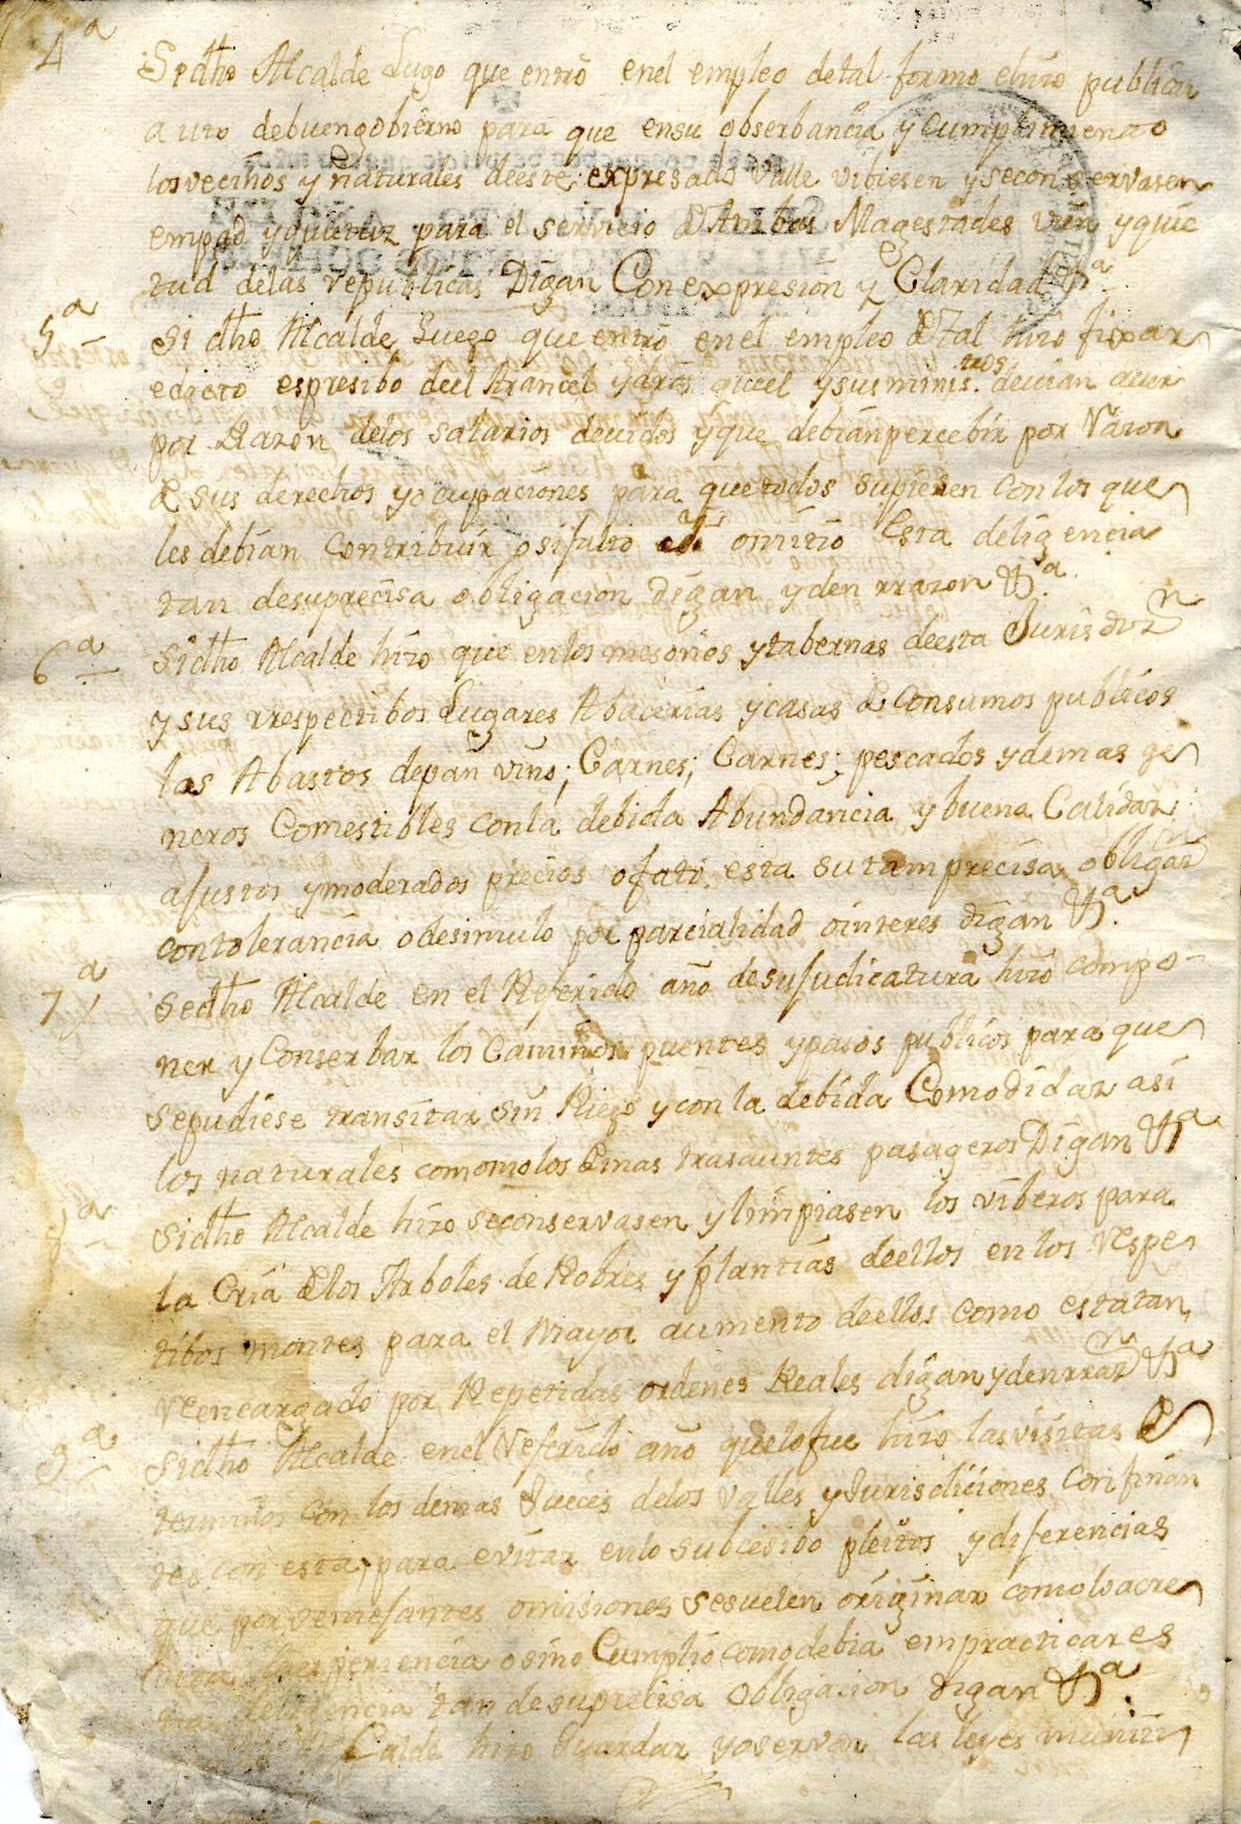 4ª
Sidho Alcalde Lugo que entrò enel empleo detal formo ehizo publicar
auto debuengobierno para que ensu obserbancia y cumplimiento
losvecinos y naturales deeste expresado Valle vibiesen yseconservasen
empad yquietuz para el servicio d Ambas Magestades vien yquie
tud delas republicas Digan Con expresion y Claridad &ª
5ª
Si dho Alcalde Luego que entrò enel empleo dTal hizo fixar
edicto espresibo del Arancel que el ysus minis.tros devian aver
por Razon delos salarios devidos yque debian percebir por Razon
d sus derechos yocupaciones para que todos supiesen con los que
les debian contribuir osifalto omitio Esta deligencia
tan desuprecisa obligacion digan yden rrazon &ª
6ª
Sidho Alcalde hizo que enlos mesones ytabernas deesta Jurisdizn
ysus rrespectibos Lugares Abacerias ycasas d Consumos publicos
las Abastos depan vino; Carnes; Carnes; pescados ydemas ge
neros Comestibles conla debida Abundancia y buena Calidaz
ajustos ymoderados precios ofato esta sutamprecisa obligazn
contolerancia odesimulo por parcialidad ointeres digan &ª
7ª
Sedho Alcalde en el Referido año desujudicatura hizo compo
ner y Conserbar los Caminos puentes ypasos publicos para que
sepudiese transitar sin Riego ycon la debida Comodidaz asi
los naturales comomolos Emas trasauntes pasageros Digan &ª
8ª
Sidho Alcalde hizo seconservasen ylimpiasen los viberos para
la Cria dlos Arboles de Robres yplantias deellos enlos Respe
tibos montes para el Mayor aumento deellos como estatan
rencargado por Repetidas ordenes Reales digan ydenrrazn &ª
9ª
Sidho Alcalde enel Referido año quelofue hizo lasvisitas d
terminos con los demas Jueces delos Valles yJurisdiciones Confinan
tes con esta, para evitar enlo subcesibo pleitos ydiferencias
que por semejantes omisiones sesuelen originar comoloacre
dita experiencia osino Cumplio comodebia empracticar es
ta deligencia tan desuprecisa obligacion digan &ª
Calde hizo Guardar yoservar las leyes